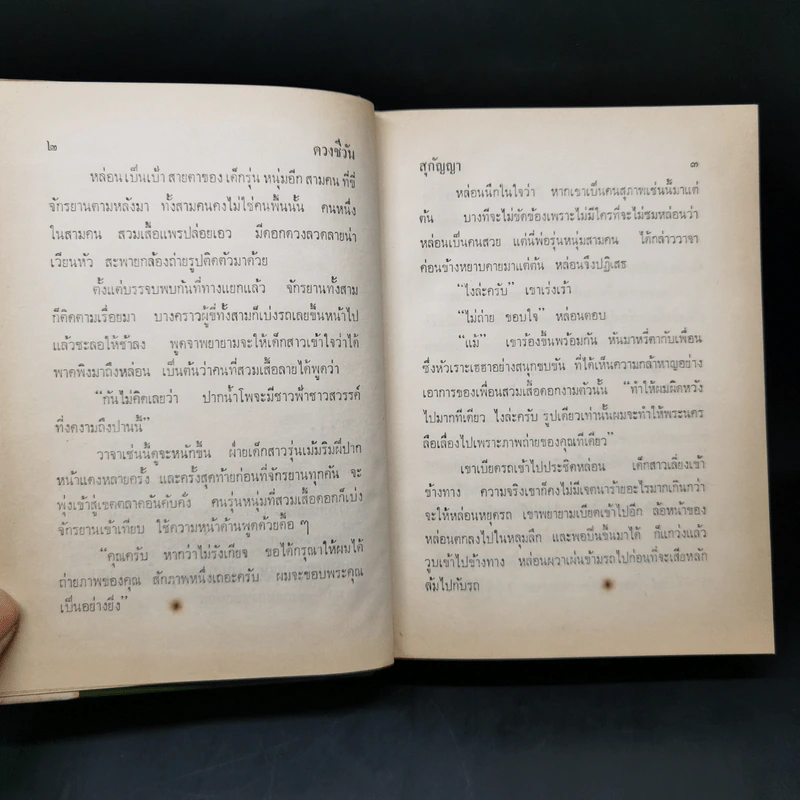 ๒ ดวงชีวัน
หล่อนเป็นเป้าสายตาของเด็กรุ่นหนุ่มอีกสามคนที่ขี่
จักรยานตามหลังมา ทั้งสามคนคงไม่ใช่คนพื้นนั้น คนหนึ่ง
ในสามคน สวมเสื้อแพรปล่อยเอว มีดอกดวงลวดลายน่า
เวียนหัว สะพายกล้องถ่ายรูปติดตัวมาด้วย
ตั้งแต่บรรจบพบกันที่ทางแยกแล้ว จักรยานทั้งสาม
ก็ติดตามเรื่อยมา บางคราวผู้ขี่ทั้งสามก็เบ่งรถเลยขึ้นหน้าไป
แล้วชะลอให้ช้าลง พูดจาพยายามจะให้เด็กสาวเข้าใจว่าได้
พาดพิงมาถึงหล่อน เป็นต้นว่าคนที่สวมเสื้อลายได้พูดว่า
“กันไม่คิดเลยว่า ปากน้ำโพจะมีชาวฟ้าชาวสวรรค์
ที่งดงามถึงปานนี้”
วาจาเช่นนี้ดูจะหนักขึ้น ฝ่ายเด็กสาวรุ่นเม้มริมฝีปาก
หน้าแดงหลายครั้ง และครั้งสุดท้ายก่อนที่จักรยานทุกคัน จะ
พุ่งเข้าสู่เขตตลาดอันคับคั่ง คนรุ่นหนุ่มที่สวมเสื้อดอกก็เบ่ง
จักรยานเข้าเทียบ ใช้ความหน้าด้านพูดด้วยดื้อ ๆ
“คุณครับ หากว่าไม่รังเกียจ ขอได้กรุณาให้ผมได้
ถ่ายภาพของคุณ สักภาพหนึ่งเถอะครับ ผมจะขอบพระคุณ
เป็นอย่างยิ่ง”
สุกัญญา ๓
หล่อนนึกในใจว่า หากเขาเป็นคนสุภาพเช่นนี้มาแต่
ต้น บางทีจะไม่ขัดข้องเพราะไม่มีใครที่จะไม่ชมหล่อนว่า
หล่อนเป็นคนสวย แต่นี่พ่อรุ่นหนุ่มสามคน ได้กล่าววาจา
ค่อนข้างหยาบคายมาแต่ต้น หล่อนจึงปฏิเสธ
“ไงล่ะครับ” เขาเร่งเร้า
“ไม่ถ่าย ขอบใจ” หล่อนตอบ
“แม้” เขาร้องขึ้นพร้อมกัน หันมาหรี่ตากับเพื่อน
ซึ่งหัวเราะเฮฮาอย่างสนุกขบขัน ที่ได้เห็นความกล้าหาญอย่าง
เอาการของเพื่อนสวมเสื้อดอกงามตัวนั้น “ทำให้ผมผิดหวัง
ไปมากทีเดียว ไงล่ะครับ รูปเดียวเท่านั้นผมจะทำให้พระนคร
ลือเลื่องไปเพราะภาพถ่ายของคุณทีเดียว”
เขาเบียดรถเข้าไปประชิดหล่อน เด็กสาวเลี่ยงเข้า
ข้างทาง ความจริงเขาก็คงไม่มีเจตนาร้ายอะไรมากเกินกว่า
จะให้หล่อนหยุดรถ เขาพยายามเบียดเข้าไปอีก ล้อหน้าของ
หล่อนตกลงไปในหลุมลึก และพอปีนขึ้นมาได้ ก็แกว่งแล้ว
วูบเข้าไปข้างทาง หล่อนผวาเผ่นข้ามรถไปก่อนที่จะเสียหลัก
ล้มไปกับรถ